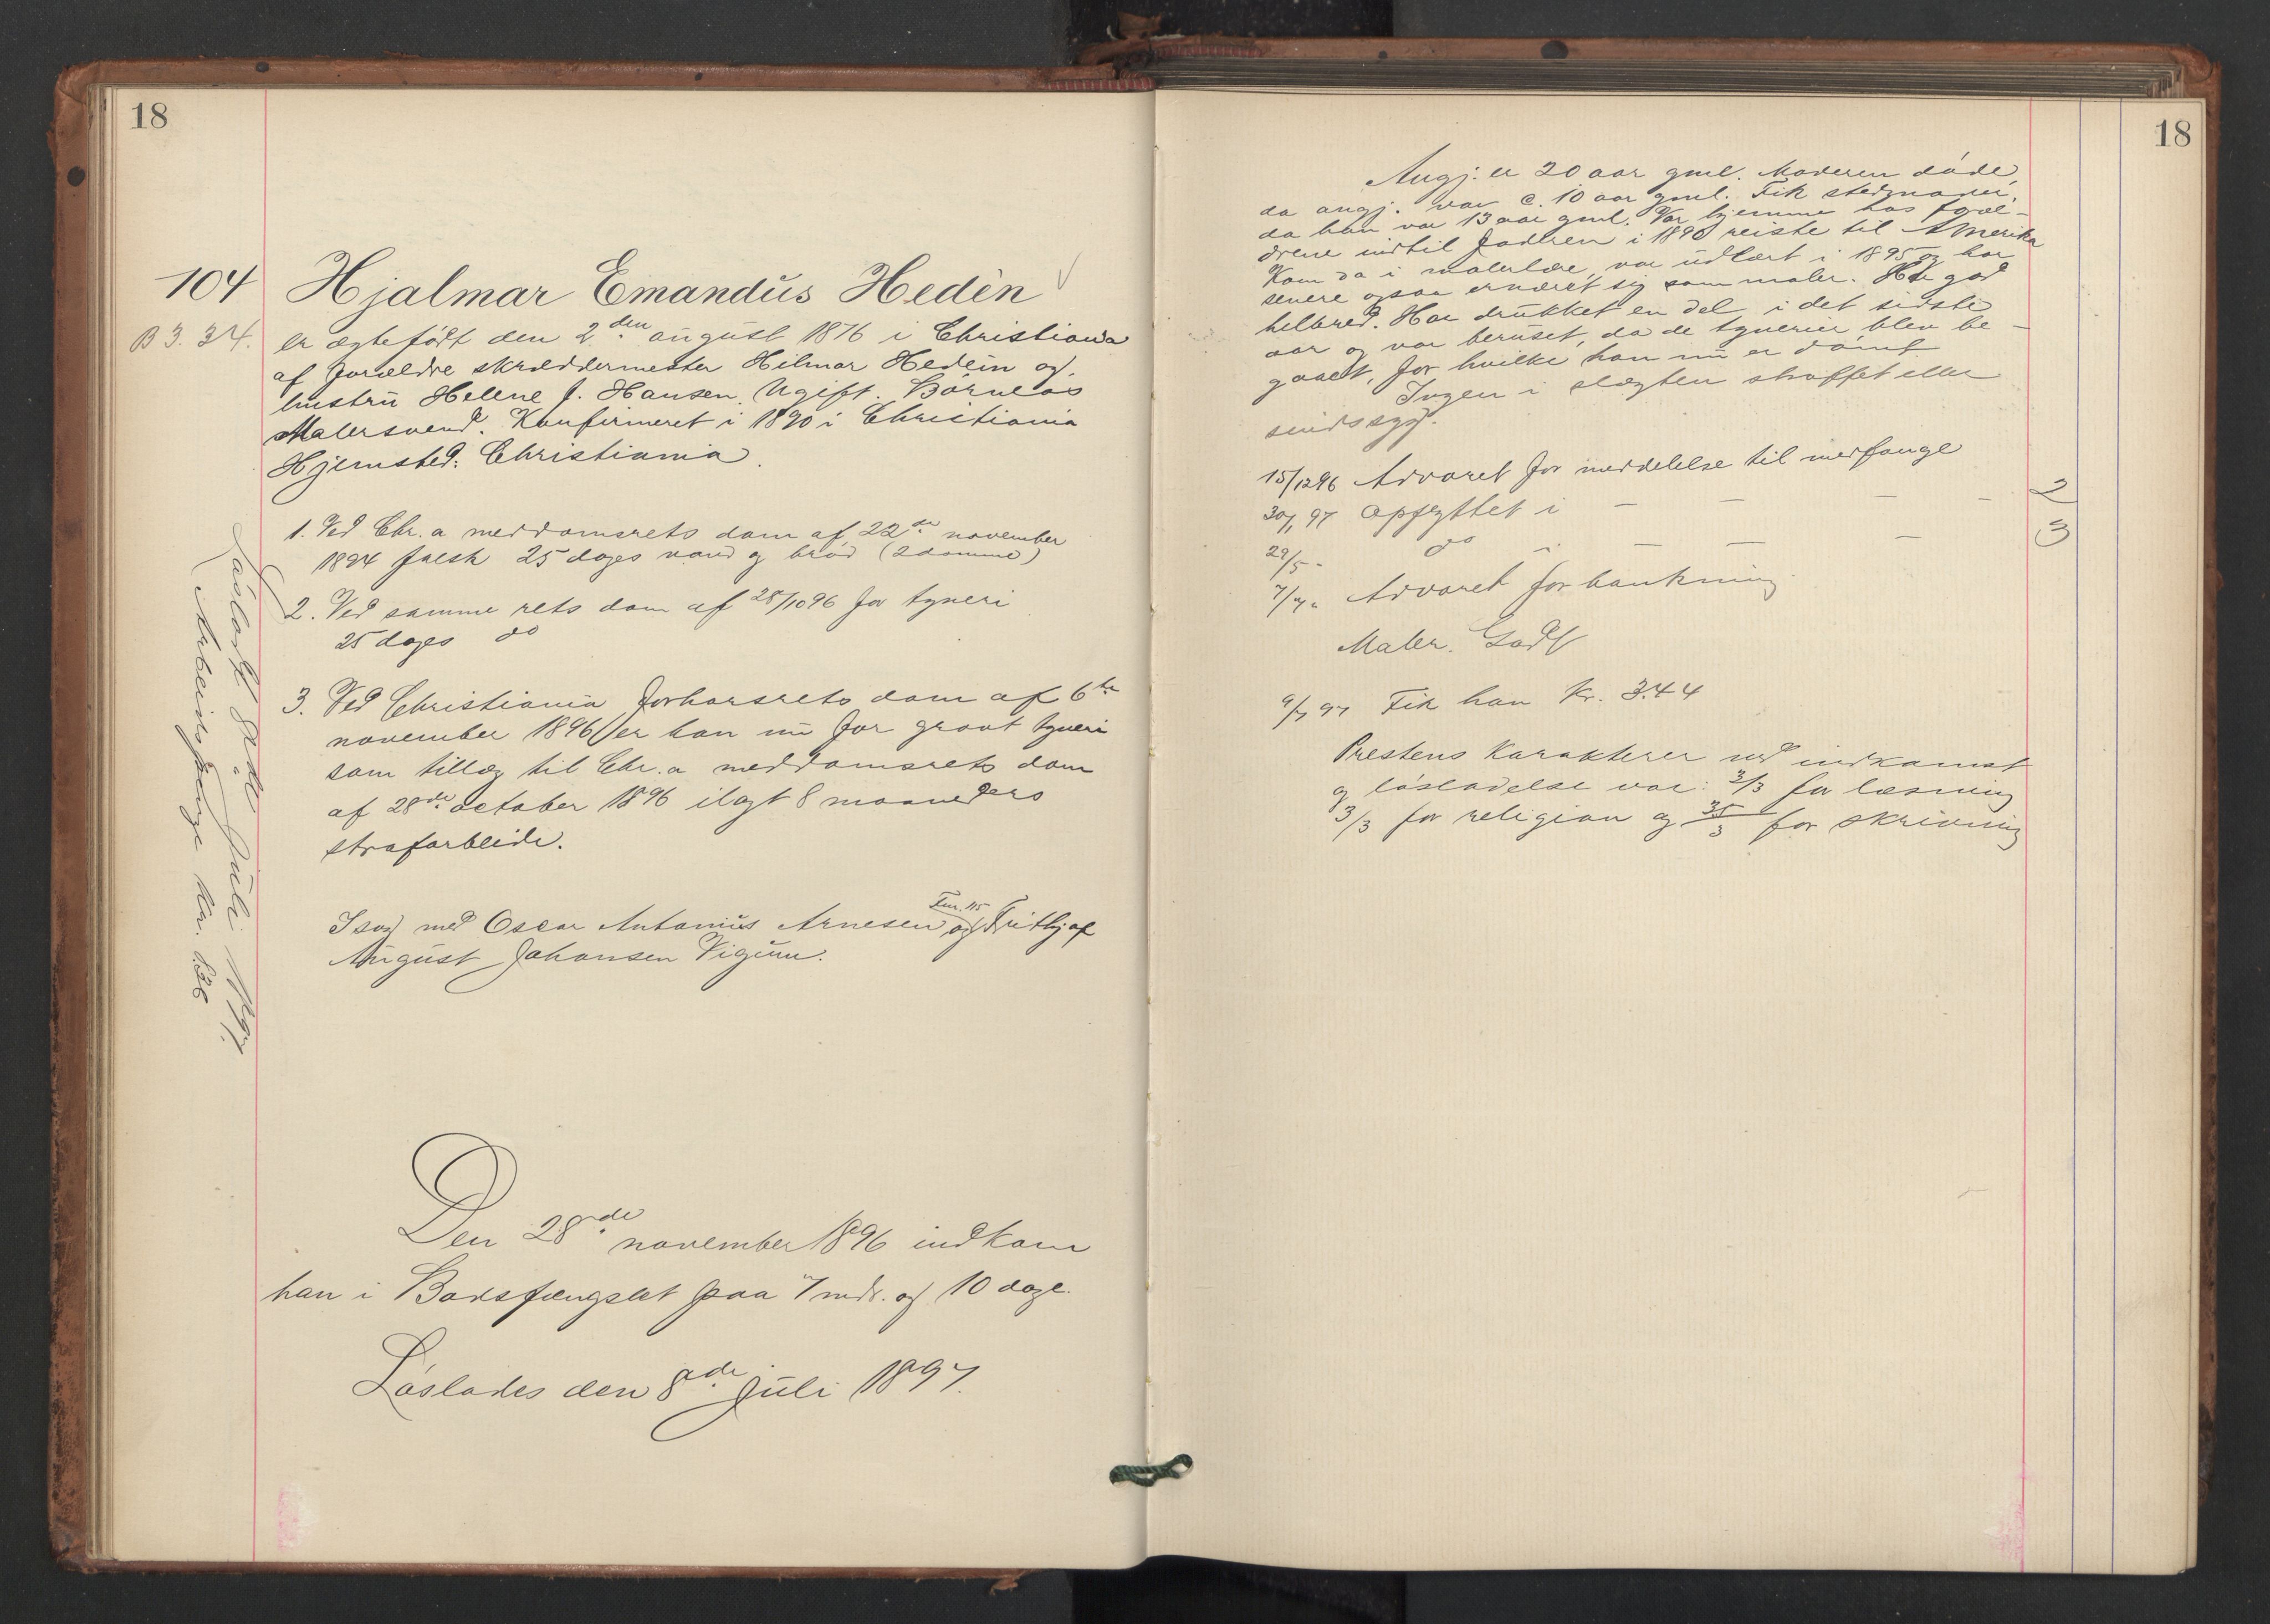 18
104 Hjalmar Emandus Hedèn
B 3. 34. er ægtefödt den 2den august 1876 i Christiania
af forældre skræddermester Hilmar Hedèn og
hustru Helene J. Hansen. Ugift. Börnelös
Malersvend. Konfirmeret i 1890 i Christiania
Hjemsted: Christiania.
1. Ved Chr.a meddomsrets dom af 22de november
1894 falsk 25 dages vand og bröd (2 domme)
2. Ved samme rets dom af 28/10 96 for tyveri
25 dages do
3. Ved Christiania forhörsrets dom af 6te
november 1896 er han nu for grovt tyveri
som tillæg til Chr.a meddomsrets dom
af 28de october 1896 ilagt 8 maaneders
strafarbeide.
I sag med Oscar Antonius Arnesen Fnr. 115 og Fritjof
August Johansen Vigum.
Den 28de november 1896 indkom
han i Bodsfængslet paa 7 mdr. og 10 dage.
Löslades den 8de Juli 1897.
Lösladt 8de Juli 1897.
Arbeidspenge Kr.
18
Angj. er 20 aar gml. Moderen döde,
da angj. var c. 10 aar gml. Fik stedmoder,
da han var 13 aar gml. Var hjemme hos foræl-
drene indtil faderen i 1890 reiste til Amerika
Kom da i malerlære, var udlært i 1895 og har
senere ogsaa ernæret sig som maler. Har god
helbred. Har drukket en del i det sidste
aar og var beruset, da de tyverier blev be-
gaaet, for hvilke han nu er dömt
Ingen i slægten straffet eller
sindssyg.
15/12 96 Advaret for meddelelse til medfange
30/1 97 Opflyttet i — — — - 2
29/5 - do i — — — 3
7/7 " Advaret for bankning
Maler. Godt
9/7 97 Fik han Kr. 3.44
Prestens Karakterer ved indkomst
og lösladelse var: 3/3 for læsning
3/3 for religion og 35/3 for skrivning